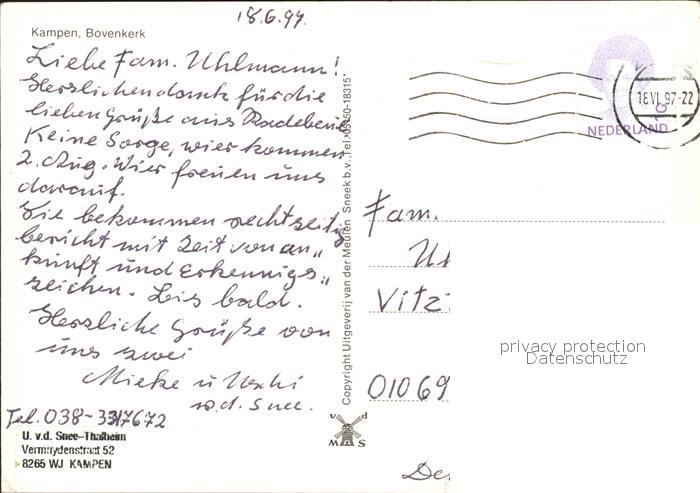 18.6.97.
Kampen, Bovenkerk
Liebe Fam. Uhlmann!
Herzlichendank für die
lieben Grüße aus Radebeul
Keine Sorge, wier kommen
2. Aug. Wier freuen uns
darauf.
Sie bekommen rechtzeitig
bericht mit Zeit von an„
kunft und Erkennigs„
zeichen. Bis bald.
Herzliche Grüße von
uns zwei
Mieke u Uschi
v.d. Snee.
Tel. 038-3317672
U. v.d. Snee-Thalheim
Vermeydenstraat 52
>8265 WJ KAMPEN
Copyright Uitgeverij van der Meulen Sneek b.v., Tel. 05150-18315*
v d
MAS
18.VI.97-22
NEDERLAND
Fam.
Uh
Vitz
01069
De
privacy protection
Datenschutz